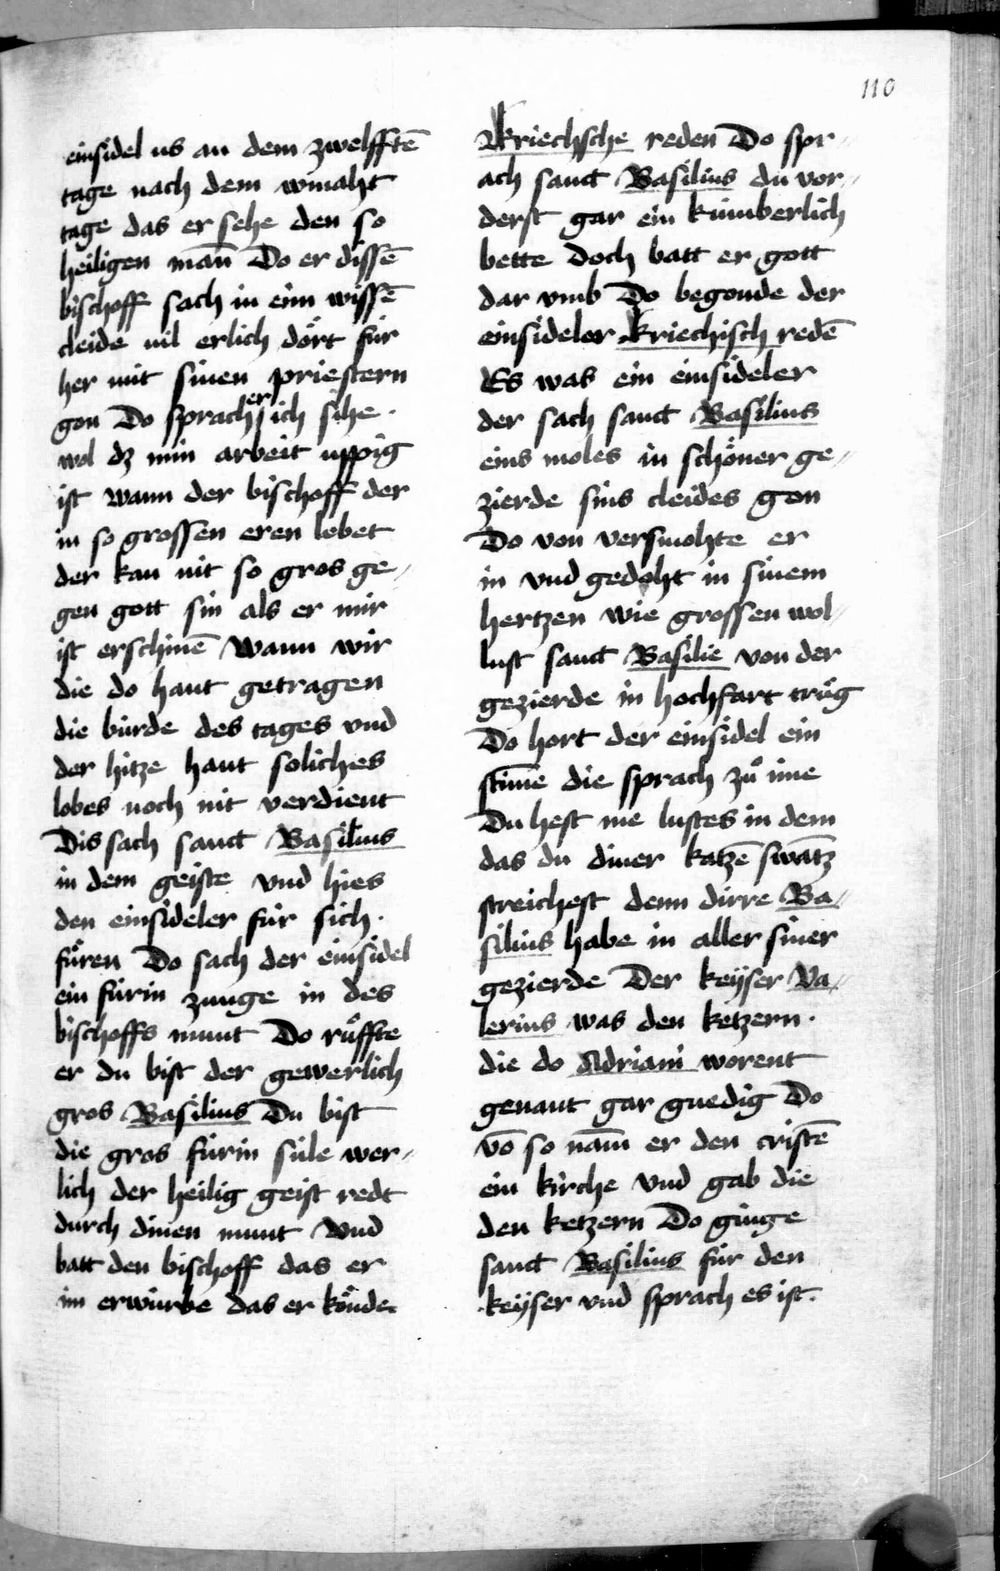 110
einsidel us an dem zwelfftē
tage nach dem winaht
tage das er sehe den so
heiligen man̄ Do er dissē
bischoff sach in eim wissē
cleide vil erlich dört für
her mit sinen priestern
gon Do sprach er ich sihe
wol dz min arbeit uppig
ist wann der bischoff der
in so grossen eren lebet
der kan nit so gros ge-
gen gott sin als er mir
ist erschinē Wann wir
die do hant getragen
die bürde des tages vnd
der hitze hant soliches
lobes noch nit verdient
Dis sach sanct Basilius
in dem geiste vnd hies
den einsideler für sich
füren Do sach der einsidel
ein fürin zunge in des
bischoffs munt Do rüffte
er du bist der gewerlich
gros Basilius Du bist
die gros fürin süle wer-
lich der heilig geist redt
durch dinen munt Vnd
batt den bischoff das er
im erwürbe das er könde
kriechsche reden Do spr-
ach sanct Basilius du vor-
derst gar ein kümberlich
bette doch batt er gott
dar vmb Do begonde der
einsideler kriechisch redē
Es was ein einsideler
der sach sanct Basilius
eins moles in schöner ge-
zierde sins cleides gon
Do von versmohte er
in vnd gedoht in sinem
hertzen wie grossen wol-
lust sanct Basilie von der
gezierde in hochfart trüg
Do hort der einsidel ein
stim̄e die sprach zů ime
Du hest me lustes in dem
das du diner katzē swātz
streichest denn dirre Ba-
silius habe in aller siner
gezierde Der keyser Va-
lerius was den ketzern
die do Adriani worent
genant gar gnedig Do
vō so nam̄ er den cristē
ein kirche vnd gab die
den ketzern Do ginge
sanct Basilius für den
keyser vnd sprach es ist